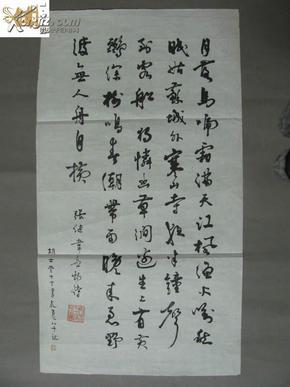 月落烏啼霜滿天江楓漁火對愁
眠姑蘇城外寒山寺夜半鐘聲
到客船獨憐幽草澗邊生上有黃
鸝深樹鳴春潮帶雨晚來急野
渡無人舟自橫
張繼韋應物詩